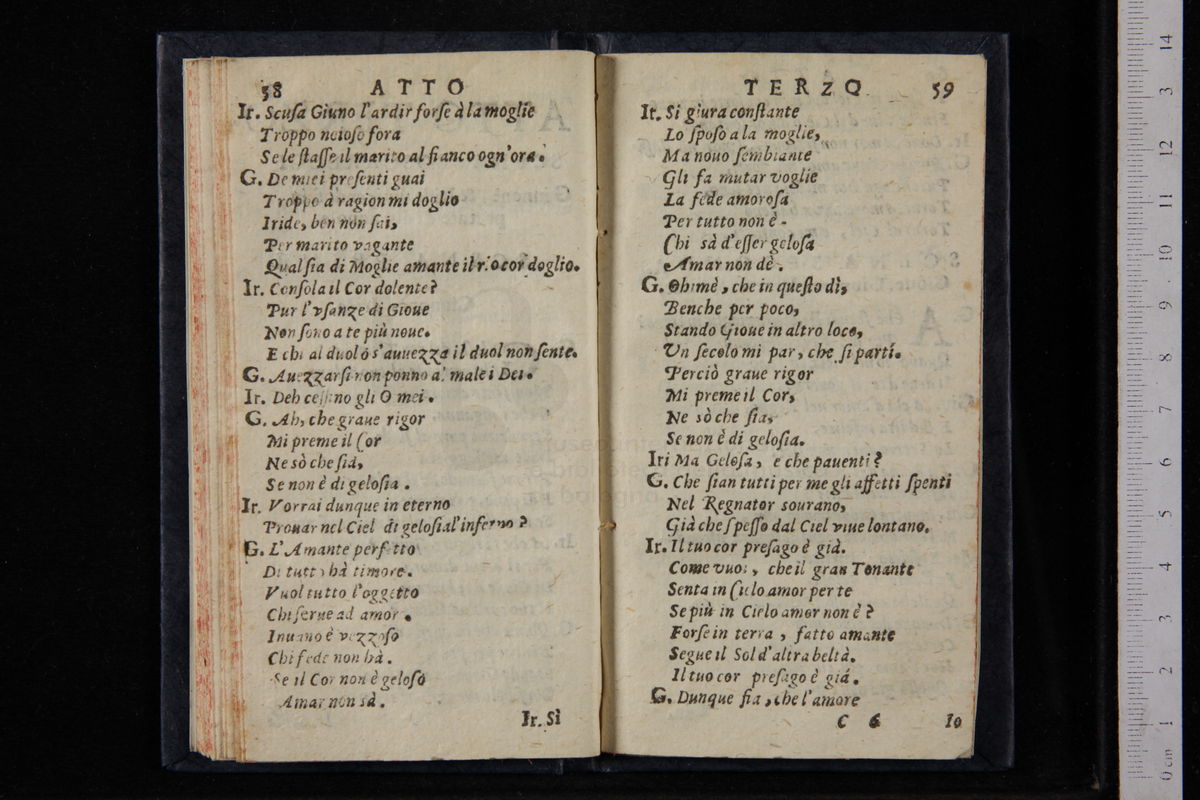 58 ATTO
Ir. Scuſa Giuno l'ardir forſe à la moglie
Troppo noioſo fora
Se le ſtaſſe il marito al fianco ogn'ora.
G. De miei preſenti guai
Troppo à ragion mi doglio
Iride, ben non ſai,
Per marito vagante
Qual ſia di Moglie amante il cordoglio.
Ir. Conſola il Cor dolente?
Pur l'vſanze di Gioue
Non ſono a te più noue.
E chi al duol ó s'auuezza il duol non ſente.
G. Auezzarſi non ponno a' male i Dei.
Ir. Deh ceſſino gli O mei.
G. Ah, che graue rigor
Mi preme il Cor
Ne sò che ſiá,
Se non è di geloſia.
Ir. Vorrai dunque in eterno
Prouar nel Ciel di geloſia l'inferno?
G. L'Amante perfetto
Di tutto hà timore.
Vuol tutto l'oggetto
Chi ſerue ad amor.
Inuano è vezzoſo
Chi fede non hà.
Se il Cor non è geloſo
Amar non sà.
Ir. Sì
TERZO 59
Ir. Si giura conſtante
Lo ſpoſo a la moglie,
Ma nouo ſembiante
Gli fa mutar voglie
La fede amoroſa
Per tutto non è.
Chi sà d'eſſer geloſa
Amar non dè.
G. Ohimè, che in queſto dì,
Benche per poco,
Stando Gioue in altro loco,
Vn ſecolo mi par, che ſi partí.
Perciò graue rigor
Mi preme il Cor,
Ne sò che ſia,
Se non è di geloſia.
Iri Ma Geloſa, e che pauenti?
G. Che ſian tutti per me gli affetti ſpenti
Nel Regnator sourano,
Già che ſpeſſo dal Ciel viue lontano.
Ir. Il tuo cor preſago è già.
Come vuoi, che il gran Tonante
Senta in Cielo amor per te
Se più in Cielo amor non è?
Forſe in terra, fatto amante
Segue il Sol d'altra beltà.
Il tuo cor preſago è giá.
G. Dunque ſia, che l'amore
C 6 Io